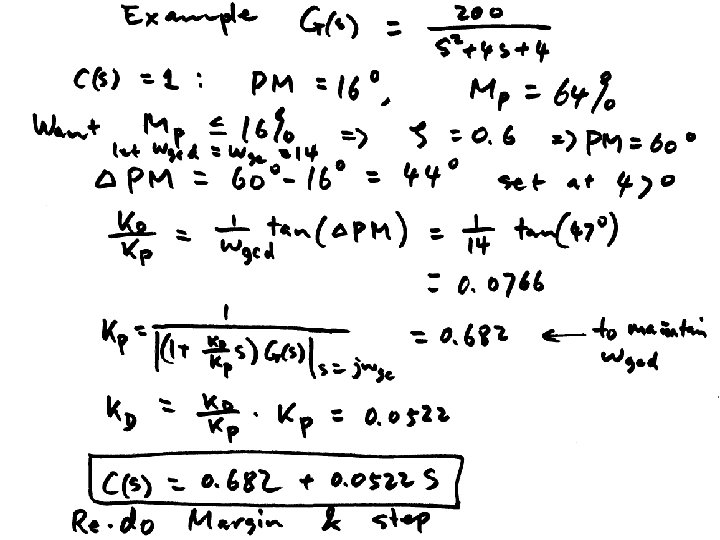 Example G(s) = 200 / (s²+4s+4)
C(s) = 1 : PM = 16°, Mp = 64%
Want Mp ≤ 16% => ζ = 0.6 => PM = 60°
let ωgcd = ωgc = 14
ΔPM = 60° - 16° = 44° set at 47°
KD/Kp = 1/ωgcd tan(ΔPM) = 1/14 tan(47°)
= 0.0766
Kp = 1 / |(1+ KD/Kp s) G(s)|s=jωgc = 0.682 ← to maintain
ωgcd
KD = KD/Kp · Kp = 0.0522
C(s) = 0.682 + 0.0522 S
Re-do Margin & step